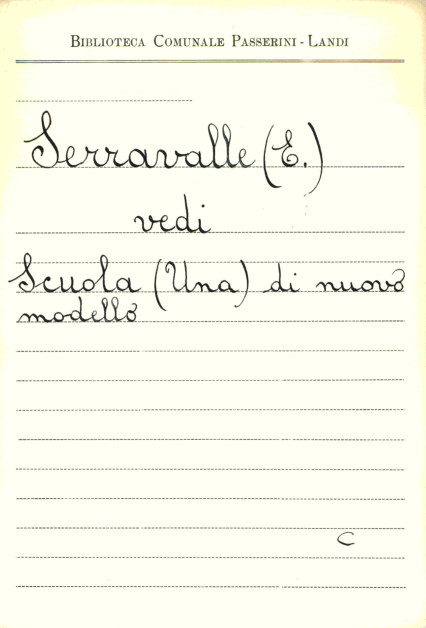 BIBLIOTECA COMUNALE PASSERINI - LANDI
Serravalle (E.)
vedi
Scuola (Una) di nuovo
modello
C